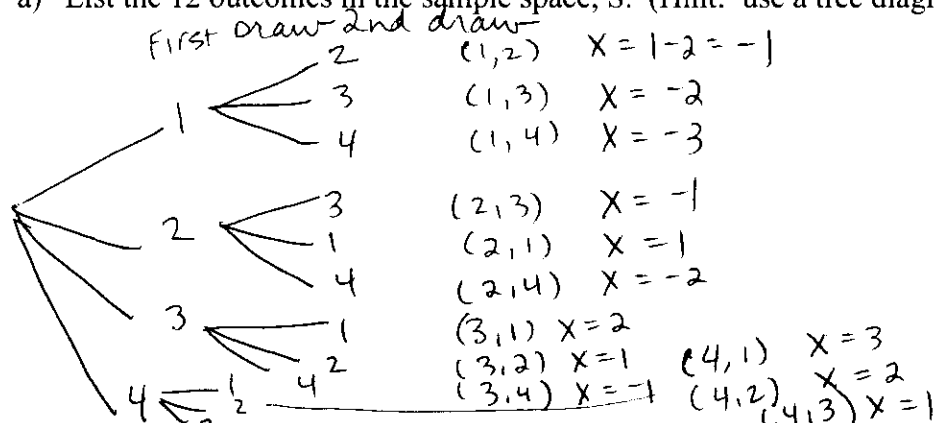 a) List the 12 outcomes in the sample space, S. (Hint: use a tree diag
First Draw 2nd draw
2 (1,2) X = 1-2 = -1
1 3 (1,3) X = -2
4 (1,4) X = -3
3 (2,3) X = -1
2 1 (2,1) X = 1
4 (2,4) X = -2
3 1 (3,1) X = 2
2 (3,2) X = 1 (4,1) X = 3
4 (3,4) X = -1 (4,2) X = 2
4 1 (4,3) X = 1
2
3